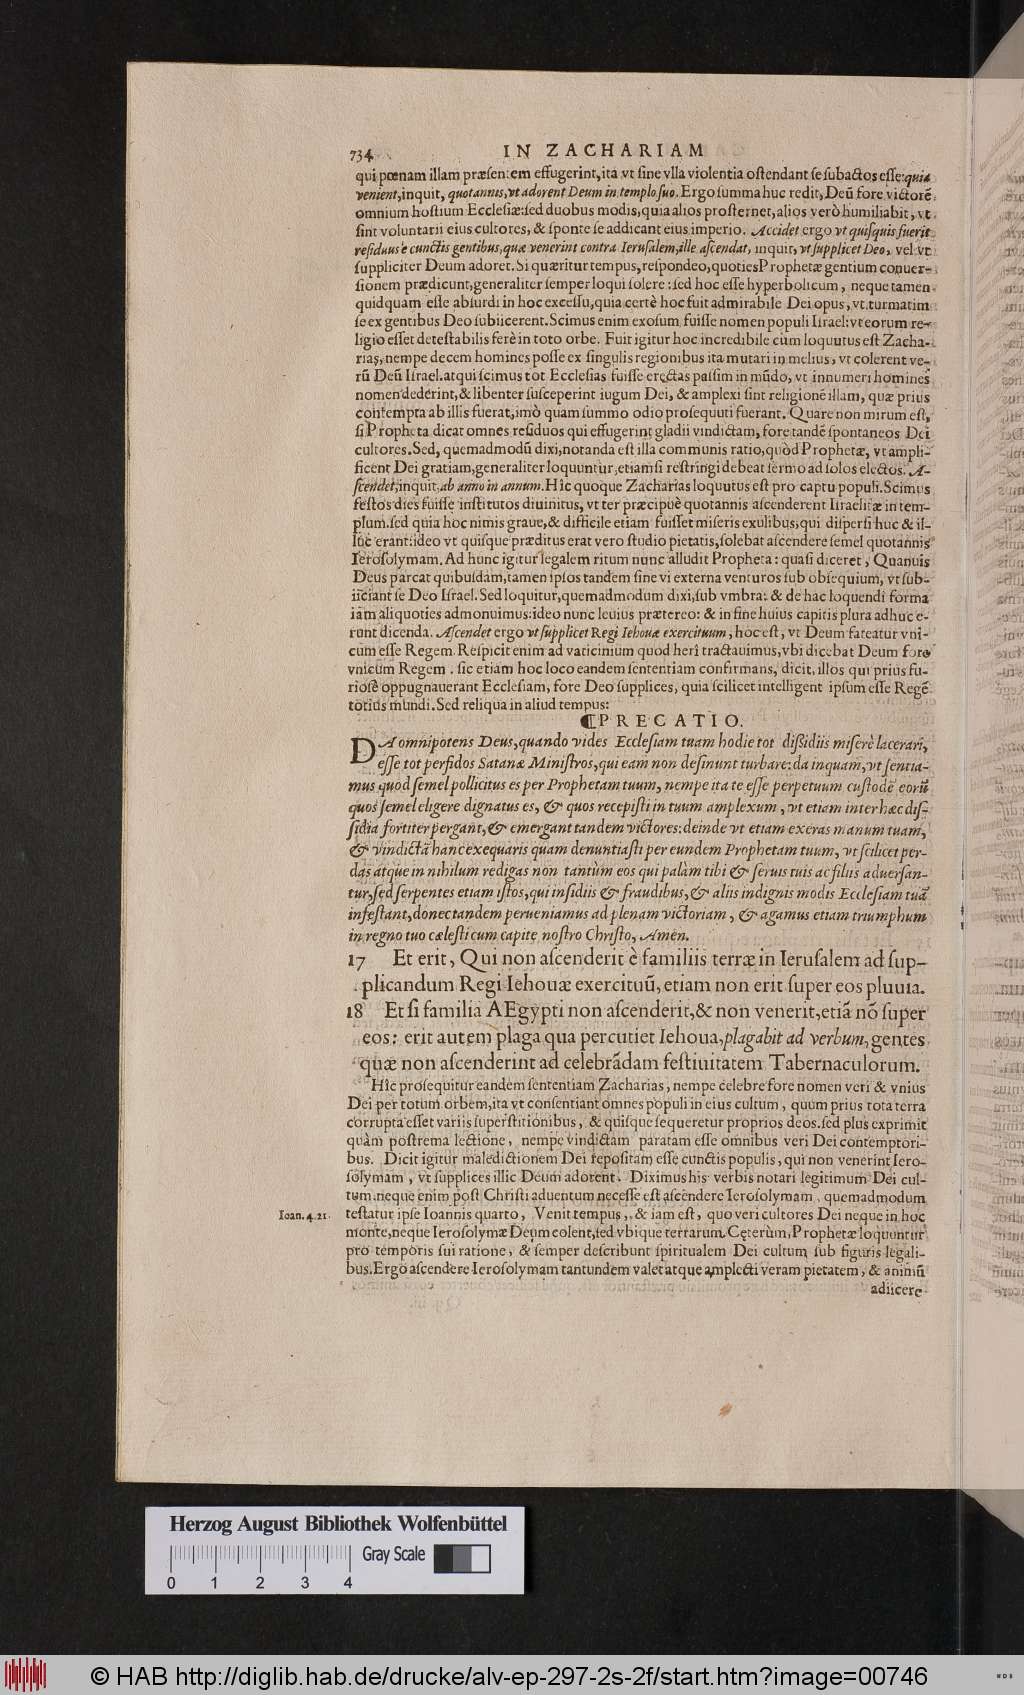 734 IN ZACHARIAM
qui pœnam illam præsentem effugerint, ita vt sine vlla violentia ostendant se subactos esse: quia
venient, inquit, quotannis, vt adorent Deum in templo suo. Ergo summa huc redit, Deũ fore victorẽ
omnium hostium Ecclesiæ: sed duobus modis, quia alios prosternet, alios verò humiliabit, vt
sint voluntarii eius cultores, & sponte se addicant eius imperio. Accidet ergo vt quisquis fuerit
residuus è cunctis gentibus, quæ venerint contra Ierusalem, ille ascendat, inquit, vt supplicet Deo, vel vt
suppliciter Deum adoret. Si quæritur tempus, respondeo, quoties Prophetæ gentium conuer-
sionem prædicunt, generaliter semper loqui solere: sed hoc esse hyperbolicum, neque tamen
quidquam esse absurdi in hoc excessu, quia certè hoc fuit admirabile Dei opus, vt turmatim
se ex gentibus Deo subiicerent. Scimus enim exosum fuisse nomen populi Israel: vt eorum re-
ligio esset detestabilis ferè in toto orbe. Fuit igitur hoc incredibile cùm loquutus est Zacha-
rias, nempe decem homines posse ex singulis regionibus ita mutari in melius, vt colerent ve-
rũ Deũ Israel. atqui scimus tot Ecclesias fuisse erectas passim in mũdo, vt innumeri homines
nomen dederint, & libenter susceperint iugum Dei, & amplexi sint religionẽ illam, quæ prius
contempta ab illis fuerat, imò quam summo odio prosequuti fuerant. Quare non mirum est,
si Propheta dicat omnes residuos qui effugerint gladii vindictam, fore tandẽ spontaneos Dei
cultores. Sed, quemadmodũ dixi, notanda est illa communis ratio, quòd Prophetæ, vt ampli-
ficent Dei gratiam, generaliter loquuntur, etiamsi restringi debeat sermo ad solos electos. A-
scendet, inquit, ab anno in annum. Hîc quoque Zacharias loquutus est pro captu populi. Scimus
festos dies fuisse institutos diuinitus, vt ter præcipuè quotannis ascenderent Israelitæ in tem-
plum. sed quia hoc nimis graue, & difficile etiam fuisset miseris exulibus, qui dispersi huc & il-
luc erant: ideo vt quisque præditus erat vero studio pietatis, solebat ascendere semel quotannis
Ierosolymam. Ad hunc igitur legalem ritum nunc alludit Propheta: quasi diceret, Quanuis
Deus parcat quibusdam, tamen ipsos tandem sine vi externa venturos sub obsequium, vt sub-
iiciant se Deo Israel. Sed loquitur, quemadmodum dixi, sub vmbra: & de hac loquendi forma
iam aliquoties admonuimus: ideo nunc leuius prætereo: & in fine huius capitis plura adhuc e-
runt dicenda. Ascendet ergo vt supplicet Regi Iehouæ exercituum, hoc est, vt Deum fateatur vni-
cum esse Regem. Respicit enim ad vaticinium quod heri tractauimus, vbi dicebat Deum fore
vnicum Regem. sic etiam hoc loco eandem sententiam confirmans, dicit, illos qui prius fu-
riosè oppugnauerant Ecclesiam, fore Deo supplices, quia scilicet intelligent ipsum esse Regẽ
totius mundi. Sed reliqua in aliud tempus:
¶PRECATIO.
DA omnipotens Deus, quando vides Ecclesiam tuam hodie tot dissidiis miserè lacerari,
esse tot perfidos Satanæ Ministros, qui eam non desinunt turbare: da inquam, vt sentia-
mus quod semel pollicitus es per Prophetam tuum, nempe ita te esse perpetuum custodẽ eorũ
quos semel eligere dignatus es, & quos recepisti in tuum amplexum, vt etiam inter hæc dis-
sidia fortiter pergant, & emergant tandem victores: deinde vt etiam exeras manum tuam,
& vindictã hanc exequaris quam denuntiasti per eundem Prophetam tuum, vt scilicet per-
das atque in nihilum redigas non tantùm eos qui palàm tibi & seruis tuis ac filiis aduersan-
tur, sed serpentes etiam istos, qui insidiis & fraudibus, & aliis indignis modis Ecclesiam tuã
infestant, donec tandem perueniamus ad plenam victoriam, & agamus etiam triumphum
in regno tuo cælesti cum capite nostro Christo, Amen.
17 Et erit, Qui non ascenderit è familiis terræ in Ierusalem ad sup-
plicandum Regi Iehouæ exercituũ, etiam non erit super eos pluuia.
18 Et si familia AEgypti non ascenderit, & non venerit, etiã nõ super
eos: erit autem plaga qua percutiet Iehoua, plagabit ad verbum, gentes
quæ non ascenderint ad celebrãdam festiuitatem Tabernaculorum.
Hîc prosequitur eandem sententiam Zacharias, nempe celebre fore nomen veri & vnius
Dei per totum orbem, ita vt consentiant omnes populi in eius cultum, quum prius tota terra
corrupta esset variis superstitionibus, & quisque sequeretur proprios deos. sed plus exprimit
quàm postrema lectione, nempe vindictam paratam esse omnibus veri Dei contemptori-
bus. Dicit igitur maledictionem Dei repositam esse cunctis populis, qui non venerint Iero-
solymam, vt supplices illic Deum adorent. Diximus his verbis notari legitimum Dei cul-
tum. neque enim post Christi aduentum necesse est ascendere Ierosolymam, quemadmodum
Ioan. 4. 21. testatur ipse Ioannis quarto, Venit tempus, & iam est, quo veri cultores Dei neque in hoc
monte, neque Ierosolymæ Deum colent, sed vbique terrarum. Cęterùm, Prophetæ loquuntur
pro temporis sui ratione, & semper describunt spiritualem Dei cultum sub figuris legali-
bus. Ergo ascendere Ierosolymam tantundem valet atque amplecti veram pietatem, & animũ
adiicere
Herzog August Bibliothek Wolfenbüttel
Gray Scale
0 1 2 3 4
© HAB http://diglib.hab.de/drucke/alv-ep-297-2s-2f/start.htm?image=00746